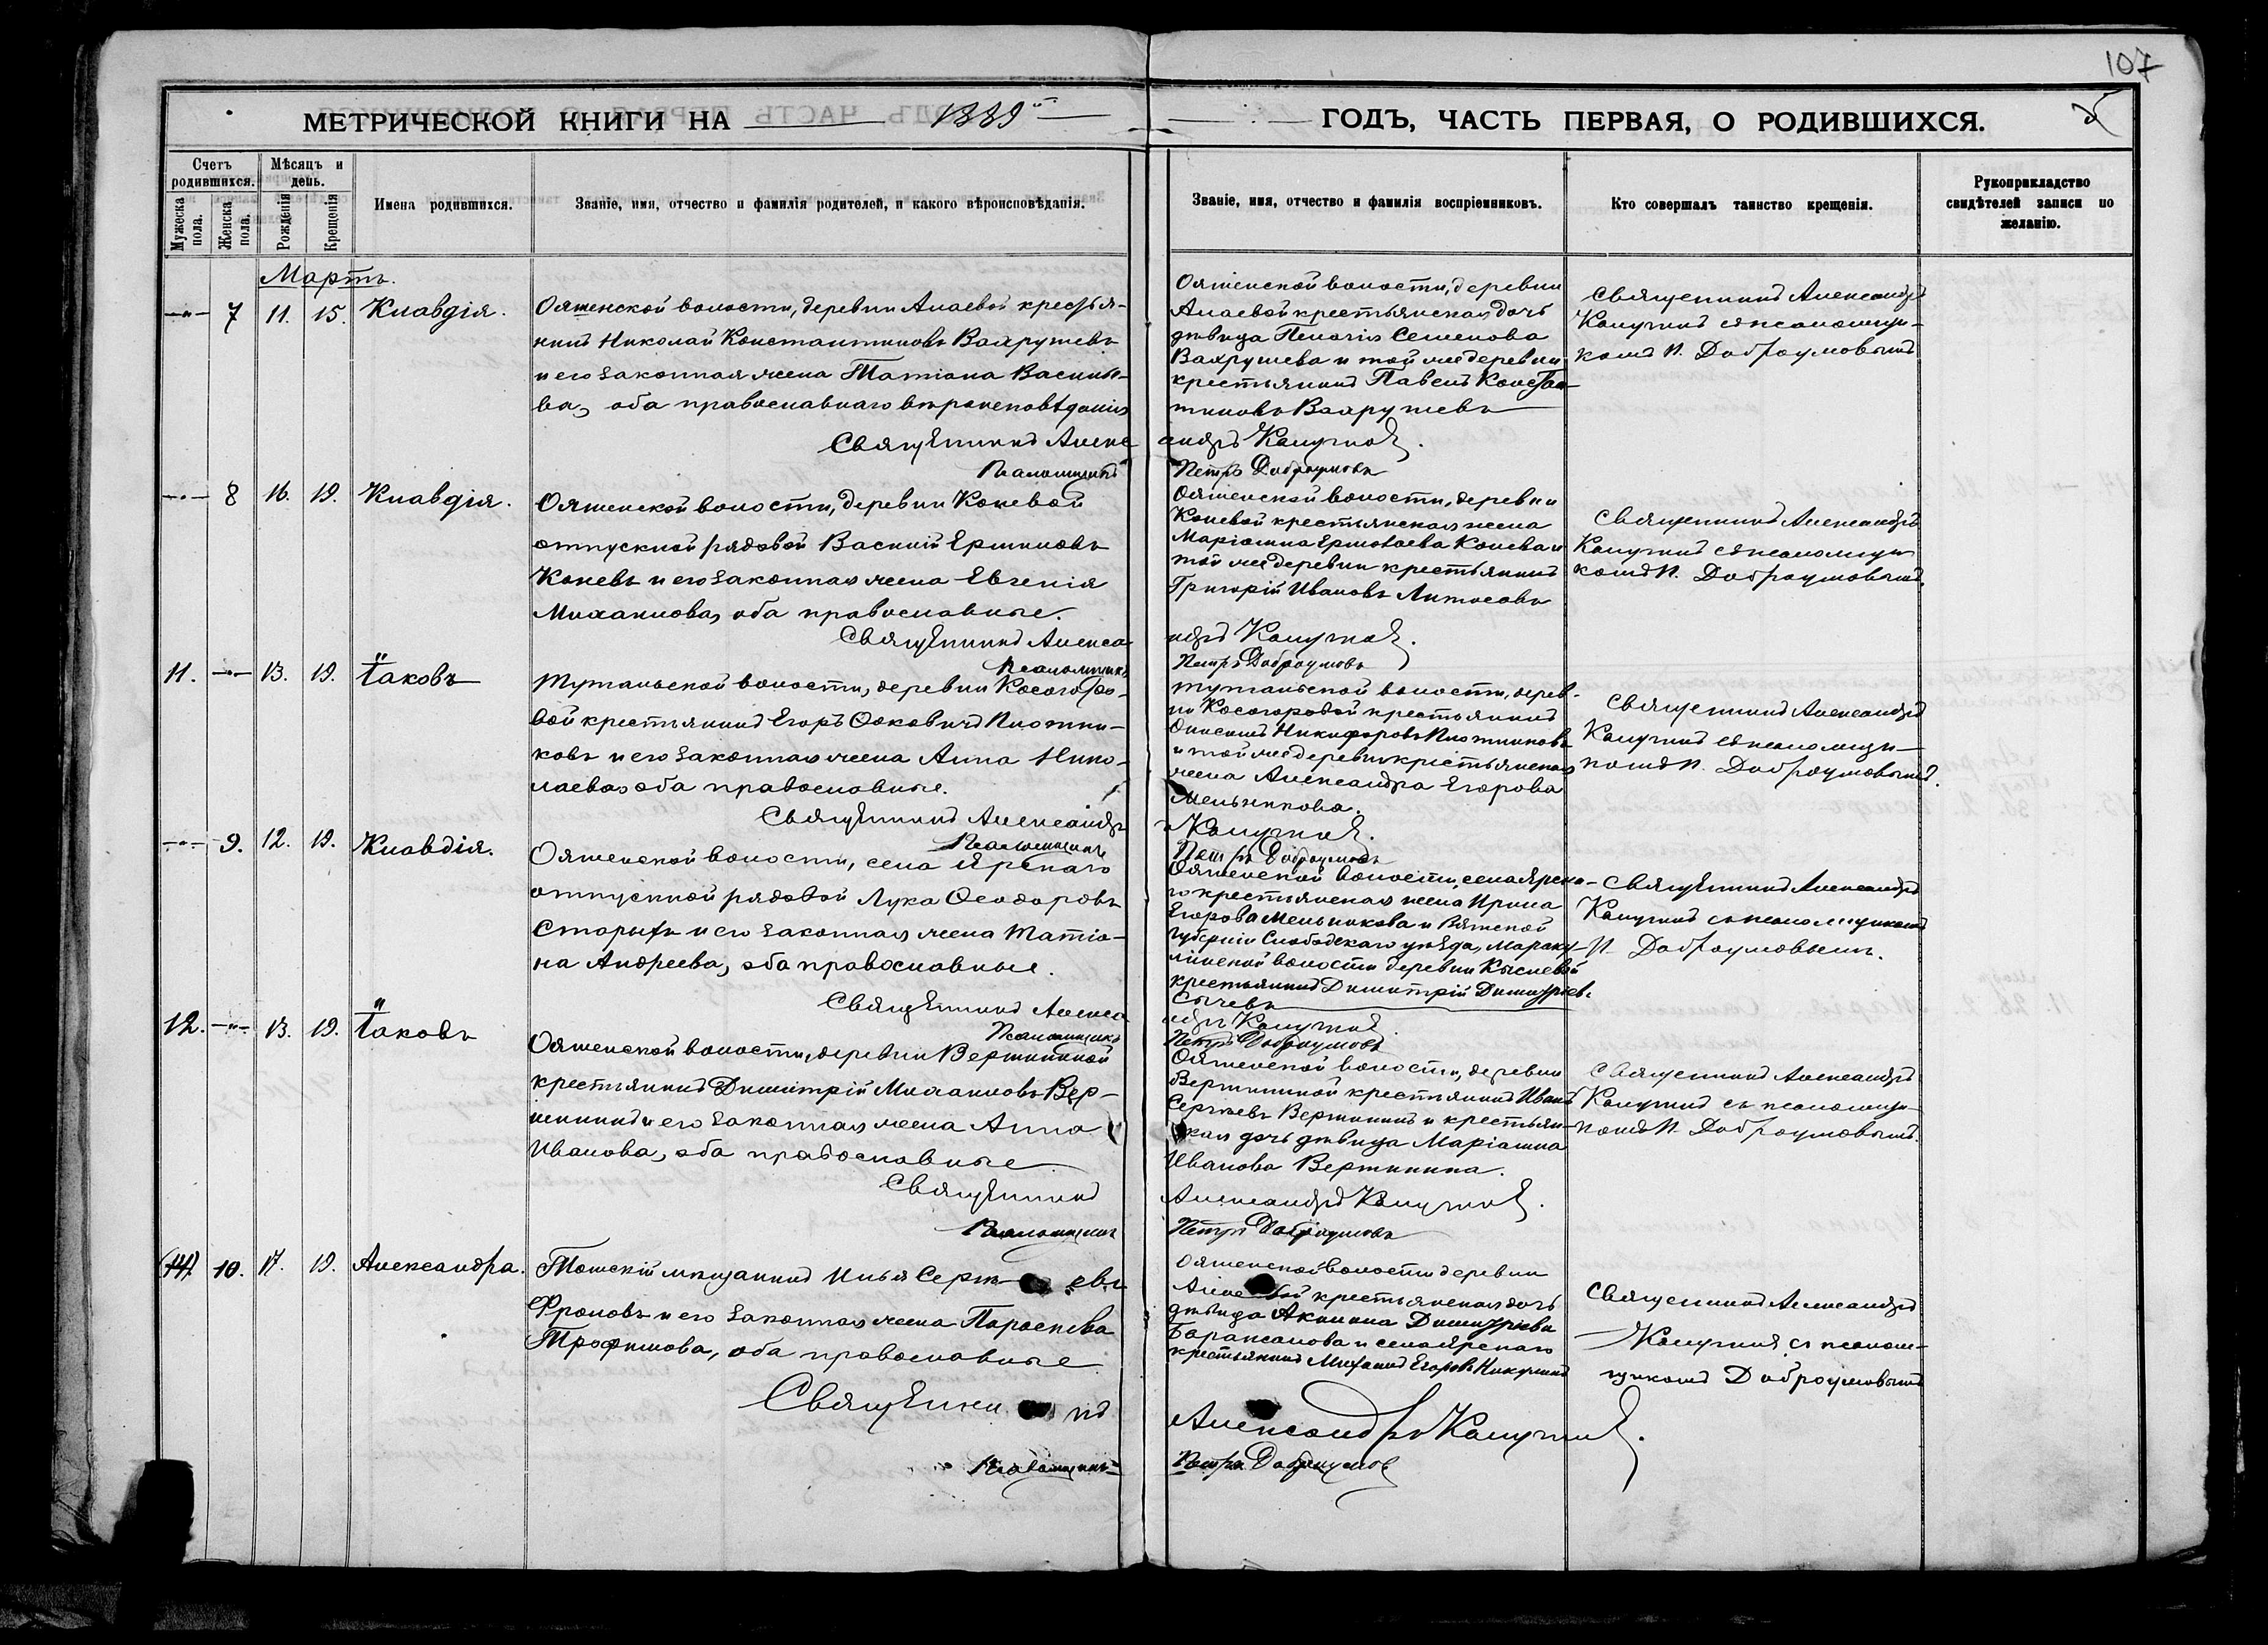 107
5
МЕТРИЧЕСКОЙ КНИГИ НА 1889 ГОДЪ, ЧАСТЬ ПЕРВАЯ, О РОДИВШИХСЯ.
Счетъ родившихся.
Мужеска пола.
Женска пола.
Мѣсяцъ и день.
Рожденія
Крещенія
Имена родившихся.
Званіе, имя, отчество и фамилія родителей, и какого вѣроисповѣданія.
Званіе, имя, отчество и фамилія воспріемниковъ.
Кто совершалъ таинство крещенія.
Рукоприкладство свидѣтелей записи по желанію.
Мартъ.
7 11. 15. Клавдія.
Ояшенской волости, деревни Алаевой крестья-
нинъ Николай Константиновъ Вахрушевъ
и его законная жена Татіана Василье-
ва, оба православнаго вѣроисповѣданія
Ояшенской волости, деревни
Алаевой крестьянская дочь
дѣвица Пелагія Семенова
Вахрушева и той же деревни
крестьянинъ Павелъ Констан-
тиновъ Вахрушевъ
Священникъ Александръ
Калугинъ съ псаломщи-
комъ П. Доброумовымъ
Священникъ Александръ Калугинъ.
Псаломщикъ Петръ Доброумовъ
8 16. 19. Клавдія.
Ояшенской волости, деревни Коневой
отпускной рядовой Василій Ермиловъ
Коневъ и его законная жена Евгенія
Михаилова, оба православные.
Ояшенской волости, деревни
Коневой крестьянская жена
Маріамна Ермолаева Конева и
той же деревни крестьянинъ
Григорій Ивановъ
Священникъ Александръ
Калугинъ съ псаломщи-
комъ П. Доброумовымъ.
Священникъ Александръ Калугинъ.
Псаломщикъ Петръ Доброумовъ
11. 13. 19. Іаковъ
Тутальской волости, деревни Косогоро-
вой крестьянинъ Егоръ Плотни-
ковъ и его законная жена Анна Нико-
лаева оба православные.
Тутальской волости, дерев-
ни Косогоровой крестьянинъ
Онисимъ Никифоровъ Плотниковъ
и той же деревни крестьянская
жена Александра Егорова
Мельникова.
Священникъ Александръ
Калугинъ съ псаломщи-
комъ П. Доброумовымъ.
Священникъ Александръ Калугинъ.
Псаломщикъ Петръ Доброумовъ
9. 12. 19. Клавдія.
Ояшенской волости, села Ярскаго
отпускной рядовой Лука Ѳеодоровъ
Старыхъ и его законная жена Татіа-
на Андреева, оба православные.
Ояшенской волости, села Ярска-
го крестьянская жена Ирина
Егорова Мельникова и Вятской
губерніи Слободскаго уѣзда,
волости деревни
крестьянинъ Димитрій Димитріевъ
Сычевъ
Священникъ Александръ
Калугинъ съ псаломщикомъ
П. Доброумовымъ.
Священникъ Александръ Калугинъ.
Псаломщикъ Петръ Доброумовъ
12. 13. 19. Іаковъ
Ояшенской волости, деревни Вершининой
крестьянинъ Димитрій Михаиловъ Вер-
шининъ и его законная жена Анна
Иванова, оба православные
Ояшенской волости, деревни
Вершининой крестьянинъ Иванъ
Сергѣевъ Вершининъ и крестьян-
ская дочь дѣвица Маріамна
Иванова Вершинина.
Священникъ Александръ
Калугинъ съ псаломщи-
комъ П. Доброумовымъ.
Священникъ Александръ Калугинъ.
Псаломщикъ Петръ Доброумовъ
10. 17. 19. Александра.
Томскій мѣщанинъ Илья Сергѣевъ
Фроловъ и его законная жена Параскева
Трофимова, оба православные
Ояшенской волости деревни
крестьянская дочь
дѣвица Акилина Димитріева
и села Ярскаго
крестьянинъ Михаилъ Егоровъ Никулинъ
Священникъ Александръ
Калугинъ съ псалом-
щикомъ Доброумовымъ
Священникъ Александръ Калугинъ.
Псаломщикъ Петръ Доброумовъ